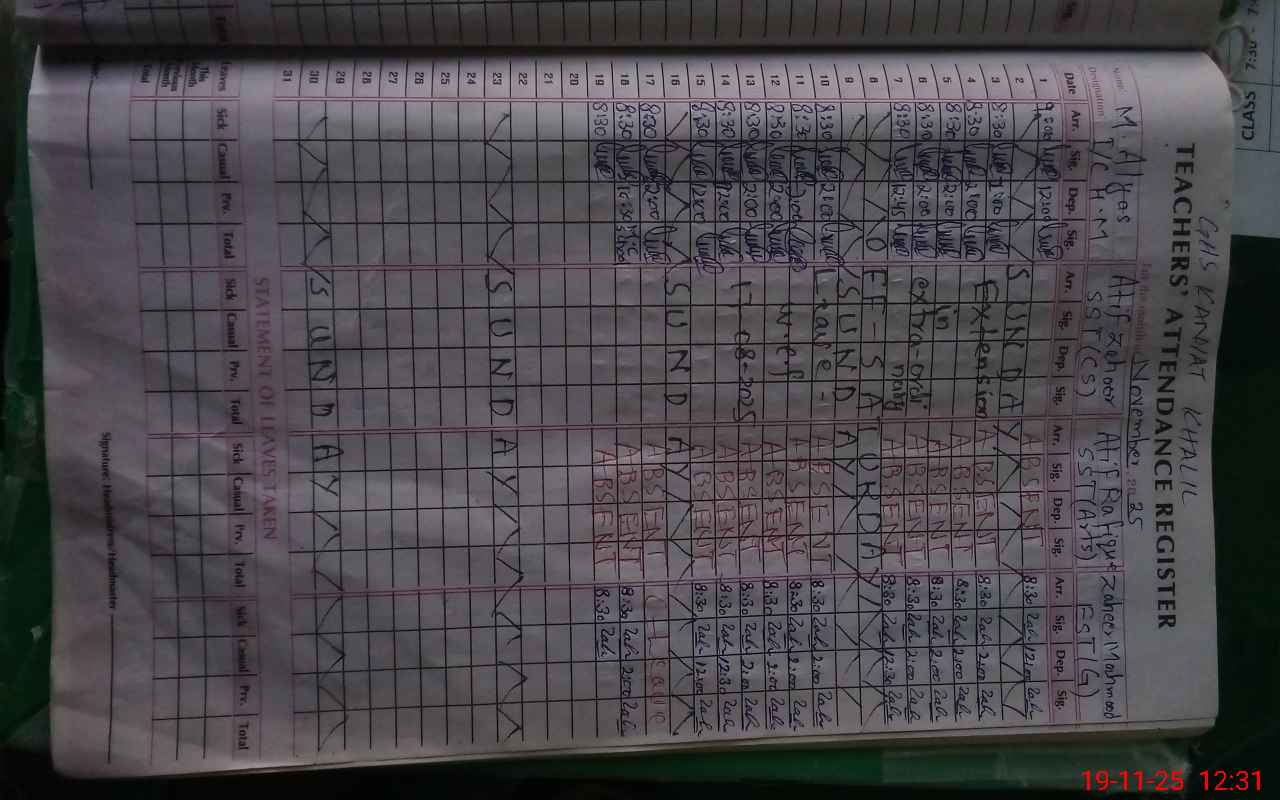 GHS KANNAT KHALIL
TEACHERS' ATTENDANCE REGISTER
November 2025
Name: M. Alyas Atif Zahoor Atif Rafique Zaheer Mahmood
Designation: I/C H.M SST(CS) SST(Arts) EST(G)
Date Arr. Sig. Dep. Sig. Arr. Sig. Dep. Sig. Arr. Sig. Dep. Sig. Arr. Sig. Dep. Sig.
1 9:00 12:00 ABSENT 8:30 Zah 12:00 Zah
2 SUNDAY
3 8:30 2:00 Extension ABSENT 8:30 Zah 2:00 Zah
4 8:30 2:00 ABSENT 8:30 Zah 2:00 Zah
5 8:30 2:00 in ABSENT 8:30 Zah 2:00 Zah
6 8:30 2:00 extra-ordi- ABSENT 8:30 Zah 2:00 Zah
7 8:30 12:45 nary ABSENT 8:30 Zah 12:30 Zah
8 OFF-SATURDAY
9 SUNDAY
10 8:30 2:00 Leave - ABSENT 8:30 Zah 2:00 Zah
11 8:30 2:00 w.e.f ABSENT 8:30 Zah 2:00 Zah
12 8:30 2:00 ABSENT 8:30 Zah 2:00 Zah
13 8:30 2:00 17-08-2025 ABSENT 8:30 Zah 2:00 Zah
14 8:30 12:00 ABSENT 8:30 Zah 12:30 Zah
15 8:30 12:00 ABSENT 8:30 Zah 12:00 Zah
16 SUNDAY
17 8:30 2:00 ABSENT Leave
18 8:30 10:30 ABSENT 8:30 Zah 2:00 Zah
19 8:30 ABSENT 8:30 Zah
20
21
22
23 SUNDAY
24
25
26
27
28
29
30 SUNDAY
31
STATEMENT OF LEAVES TAKEN
Leaves Sick Casual Prv. Total Sick Casual Prv. Total Sick Casual Prv. Total Sick Casual Prv. Total
This Month
Previous Month
Total
Signature: Headmistress/Headmaster
CLASS
19-11-25 12:31